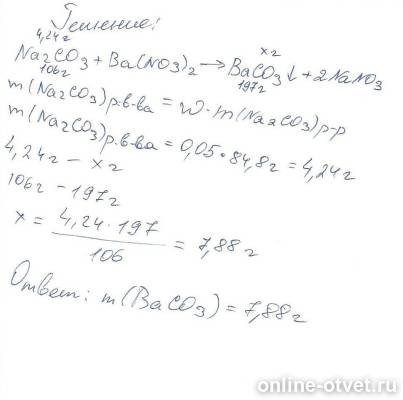 Решение:
4,24г
х г
Na2CO3 + Ba(NO3)2 → BaCO3↓ + 2NaNO3
106г
197г
m(Na2CO3)р.в-ва = ω · m(Na2CO3)р-р
m(Na2CO3)р.в-ва = 0,05 · 84,8г = 4,24г
4,24г – х г
106г – 197г
х = 4,24 · 197 / 106 = 7,88г
Ответ: m(BaCO3) = 7,88г
online-otvet.ru